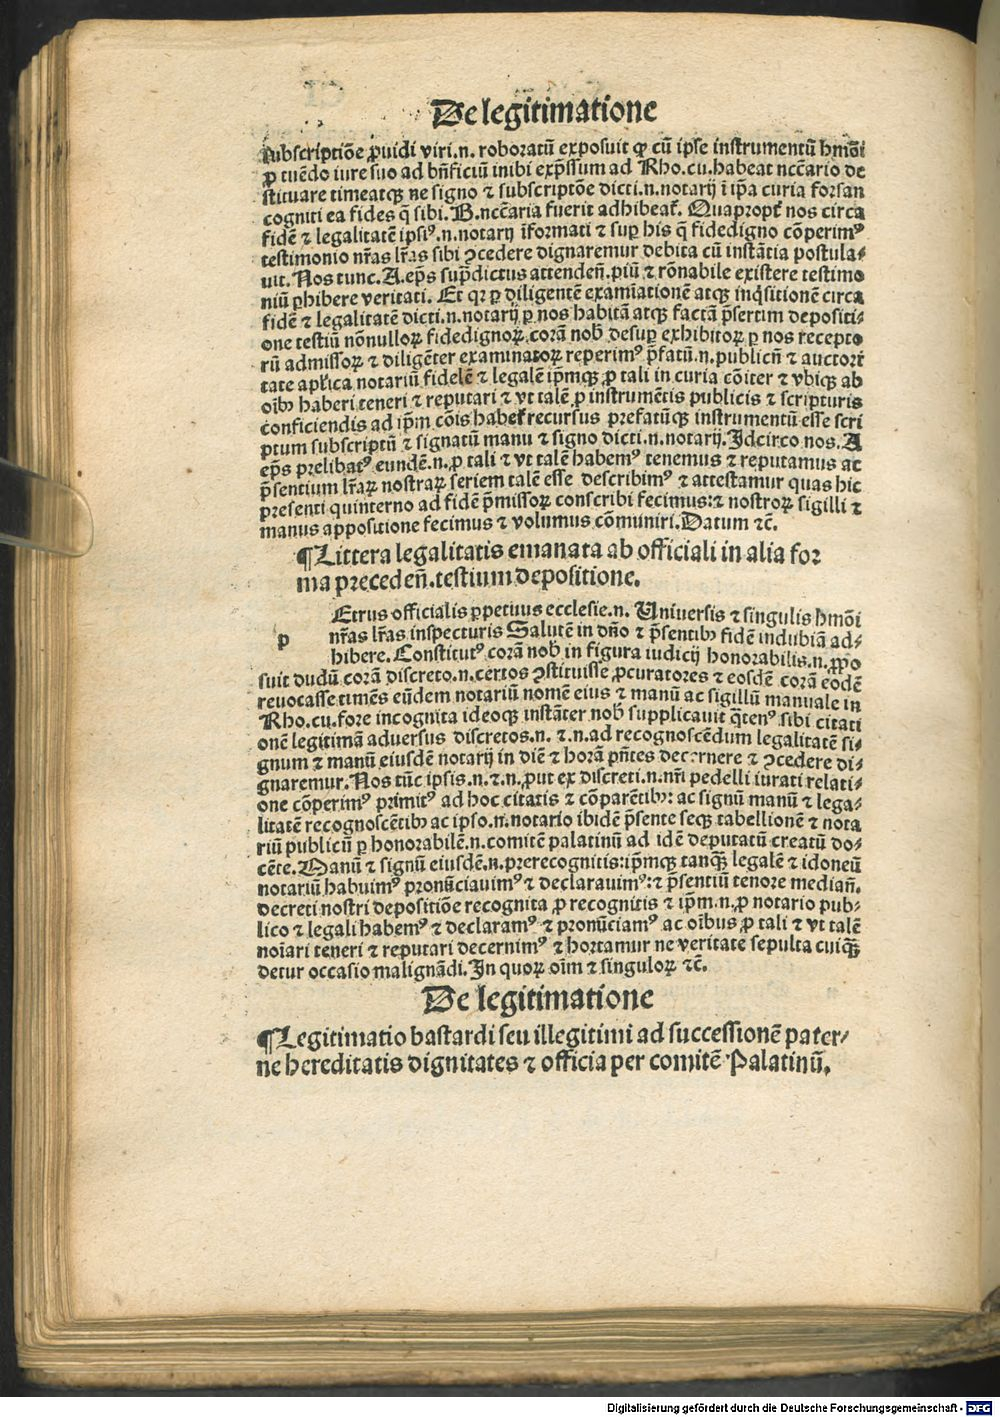 De legitimatione
subscriptiōe ꝓuidi viri.n. roboratū exposuit ꝙ cū ipse instrumentū hmōi
ꝓ tuēdo iure suo ad bn̄ficiū inibi exp̄ssum ad Rho.cu.habeat nccēario de
stituare timeatqꝫ ne signo ⁊ subscriptōe dicti.n.notarij ī ip̄a curia forsan
cogniti ea fides q̄ sibi. B.nccēaria fuerit adhibeat̄. Quapropt̄ nos circa
fidē ⁊ legalitatē ipsiꝰ.n.notarij īformati ⁊ suꝑ his q̄ fidedigno cōperimꝰ
testimonio nr̄as lr̄as sibi ꝯcedere dignaremur debita cū instātia postula-
uit. Nos tunc. A.ep̄s sup̄dictus attendeñ.piū ⁊ rōnabile existere testimo
niū ꝑhibere veritati. Et qꝛ ꝑ diligentē examīationē atqꝫ inq̇sitionē circa
fidē ⁊ legalitatē dicti.n.notarij ꝑ nos habitā atqꝫ factā p̄sertim depositi-
one testiū nōnulloꝝ fidedignoꝝ.corā nob̄ desuꝑ exhibitoꝝ ꝑ nos recepto
rū admissoꝝ ⁊ diligēter examinatoꝝ reperimꝰ p̄fatū.n.publicū ⁊ auctori
tate apl̄ica notariū fidelē ⁊ legalē ip̄mqꝫ ꝓ tali in curia cōiter ⁊ vbiqꝫ ab
oībꝫ haberi teneri ⁊ reputari ⁊ vt talē ꝓ instrumētis publicis ⁊ scripturis
conficiendis ad ip̄m cōis habet̄ recursus prefatūqꝫ instrumentū esse scri
ptum subscriptū ⁊ signatū manu ⁊ signo dicti.n.notarij. Idcirco nos. A
ep̄s prelibatꝰ eundē.n.ꝓ tali ⁊ vt talē habemꝰ tenemus ⁊ reputamus ac
p̄sentium lr̄aꝝ nostraꝝ seriem talē esse describimꝰ ⁊ attestamur quas hic
presenti quinterno ad fidē p̄missoꝝ conscribi fecimus:⁊ nostroꝝ sigilli ⁊
manus appositione fecimus ⁊ volumus cōmuniri. Datum ⁊c̄.
¶Littera legalitatis emanata ab officiali in alia for
ma precedeñ.testium depositione.
p
Etrus officialis ꝑpetuus ecclesie.n. Uniuersis ⁊ singulis hmōi
nr̄as lr̄as inspecturis Salutē in dn̄o ⁊ p̄sentibꝫ fidē indubiā ad-
hibere. Constitutꝰ corā nob̄ in figura iudicij honorabilis.n. ꝓpo
suit dudū corā discreto.n.certos ꝯstituisse ꝓcuratores ⁊ eosdē corā eodē
reuocasse timēs eūdem notariū nomē eius ⁊ manū ac sigillū manuale in
Rho.cu.fore incognita ideoqꝫ instāter nob̄ supplicauit q̄tenꝰ sibi citati
onē legitimā aduersus discretos.n. ⁊.n.ad recognoscēdum legalitatē si-
gnum ⁊ manū eiusdē notarij in diē ⁊ horā pn̄tes decernere ⁊ ꝯcedere di-
gnaremur. Nos tūc ipsis.n.⁊.n.ꝓut ex discreti.n.nr̄i pedelli iurati relati-
one cōperimꝰ primitꝰ ad hoc citatis ⁊ cōparētibꝫ: ac signū manū ⁊ lega-
litatē recognoscētibꝫ ac ipso.n.notario ibidē p̄sente seqꝫ tabellionē ⁊ nota
riū publicū ꝑ honorabilē.n.comitē palatinū ad idē deputatū creatū do-
cēte. Manū ⁊ signū eiusdē.n.prerecognitis:ip̄mqꝫ tanqꝫ legalē ⁊ idoneū
notariū habuimꝰ pronūciauimꝰ ⁊ declarauimꝰ:⁊ p̄sentiū tenore medianꝰ.
decreti nostri depositiōe recognita ꝓ recognitis ⁊ ip̄m.n.ꝓ notario pub-
lico ⁊ legali habemꝰ ⁊ declaramꝰ ⁊ pronūciamꝰ ac oībus ꝓ tali ⁊ vt talē
noīari teneri ⁊ reputari decernimꝰ ⁊ hortamur ne veritate sepulta cuiqꝫ
detur occasio malignādi. In quoꝝ oīm ⁊ singuloꝝ ⁊c̄.
De legitimatione
¶Legitimatio bastardi seu illegitimi ad successionē pater-
ne hereditatis dignitates ⁊ officia per comitē Palatinū.
Digitalisierung gefördert durch die Deutsche Forschungsgemeinschaft - DFG